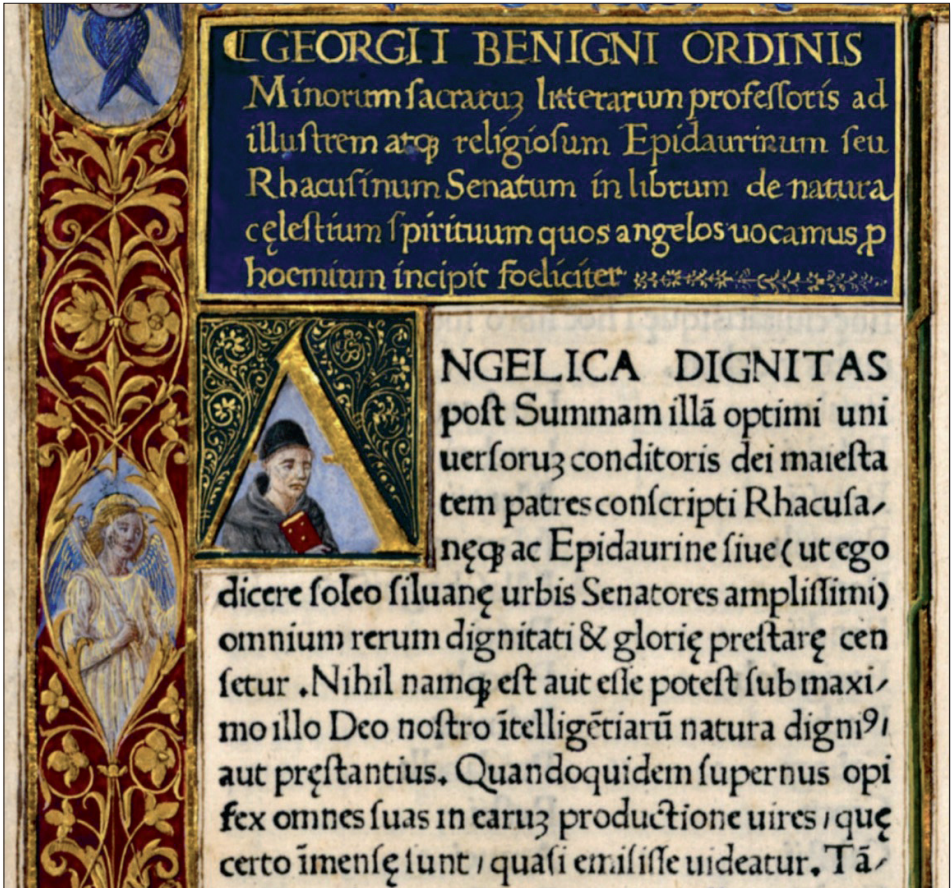 ⸿GEORGII BENIGNI ORDINIS
Minorum ſacraruꝫ litterarum profeſſoris ad
illuſtrem atqꝫ religioſum Epidaurinum ſeu
Rhacuſinum Senatum in librum de natura
cęleſtium ſpirituum quos angelos uocamus ꝓ
hoemium incipit foeliciter
ANGELICA DIGNITAS
poſt Summam illā optimi uni
uerſoruꝫ conditoris dei maieſta
tem patres conſcripti Rhacuſa⸗
nęqꝫ ac Epidaurine ſiue ( ut ego
dicere ſoleo ſiluanę urbis Senatores ampliſſimi)
omnium rerum dignitati & glorię preſtarę cen
ſetur . Nihil namqꝫ eſt aut eſſe poteſt ſub maxi⸗
mo illo Deo noſtro ītelligētiarū natura digniꝰ/
aut pręſtantius. Quandoquidem ſupernus opi
fex omnes ſuas in earuꝫ productione uires / quę
certo īmenſę ſunt / quaſi emiſiſſe uideatur. Tā⸗